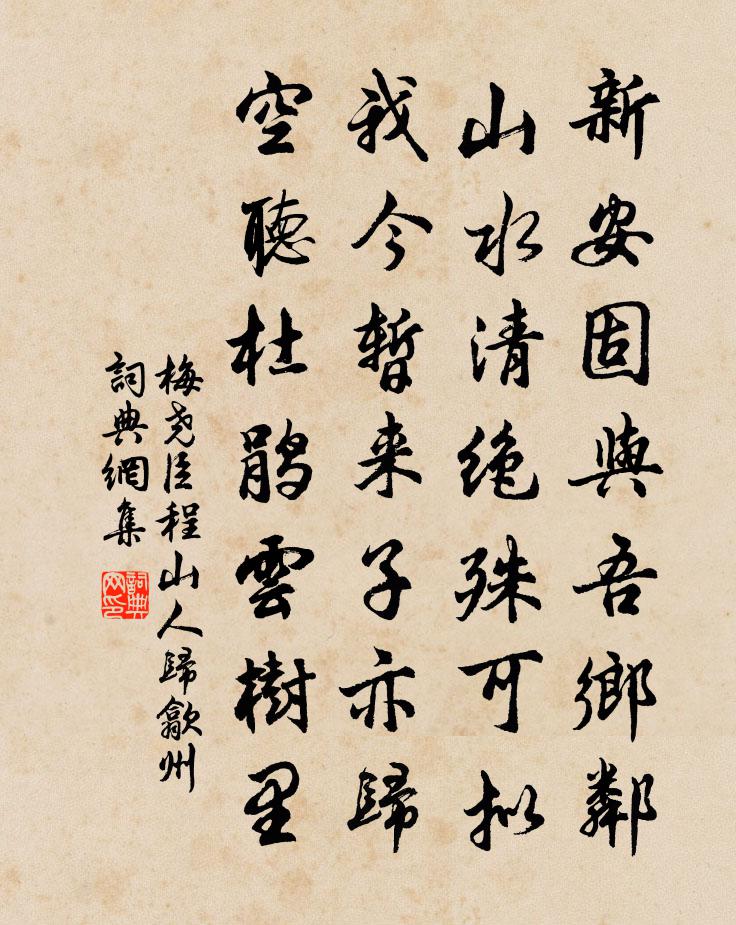 新安固與吾鄉鄰
山水清絶殊可擬
我今暫来子亦歸
空聽杜鵑雲樹里
梅尧臣程山人歸歙州
詞典網集
詞典
网印